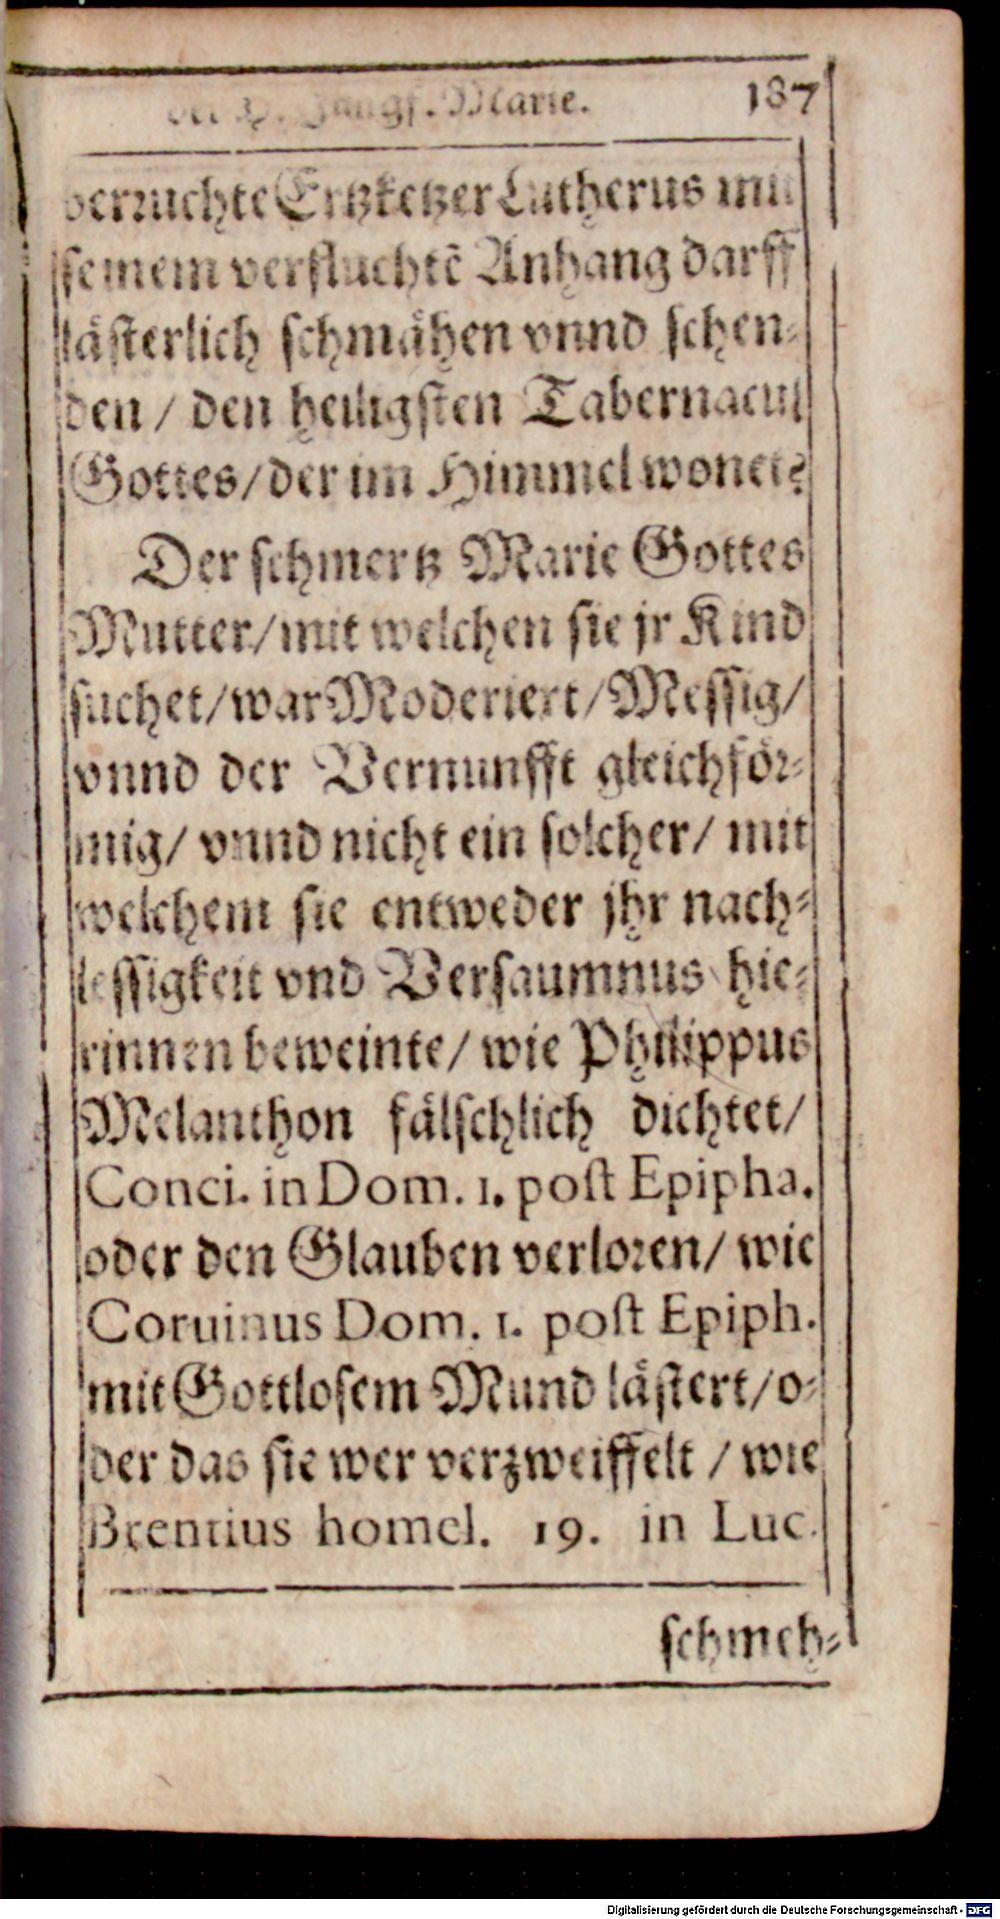 der H. Jungf. Marie. 187
verruchte Ertzketzer Lutherus mit
seinem verfluchtē Anhang darff
lästerlich schmähen vnnd schen-
den / den heiligsten Tabernacul
Gottes/ der im Himmel wonet?
Der schmertz Marie Gottes
Mutter/ mit welchen sie jr Kind
suchet/ war Moderiert/ Messig/
vnnd der Vernunfft gleichför-
mig/ vnnd nicht ein solcher/ mit
welchem sie entweder jhr nach-
lessigkeit vnd Versaumnus hie-
rinnen beweinte/ wie Philippus
Melanthon fälschlich dichtet/
Conci. in Dom. 1. post Epipha.
oder den Glauben verloren/ wie
Coruinus Dom. 1. post Epiph.
mit Gottlosem Mund lästert/ o-
der das sie wer verzweiffelt / wie
Brentius homel. 19. in Luc.
schmeh-
Digitalisierung gefördert durch die Deutsche Forschungsgemeinschaft - DFG